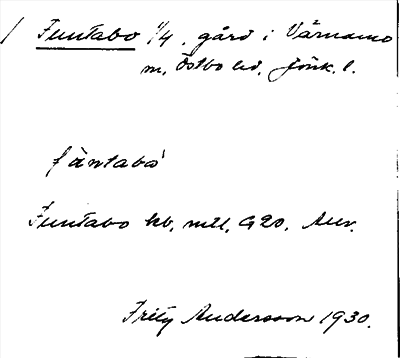 / Funtabo 1/4. gård i Värnamo
m, Östbo hd, Jönk. l.
fàntabò
Funtabo kb, mtl, G20, Auv.
Fritz Andersson 1930.